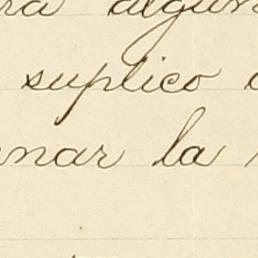 ra algun
suplico
nar la